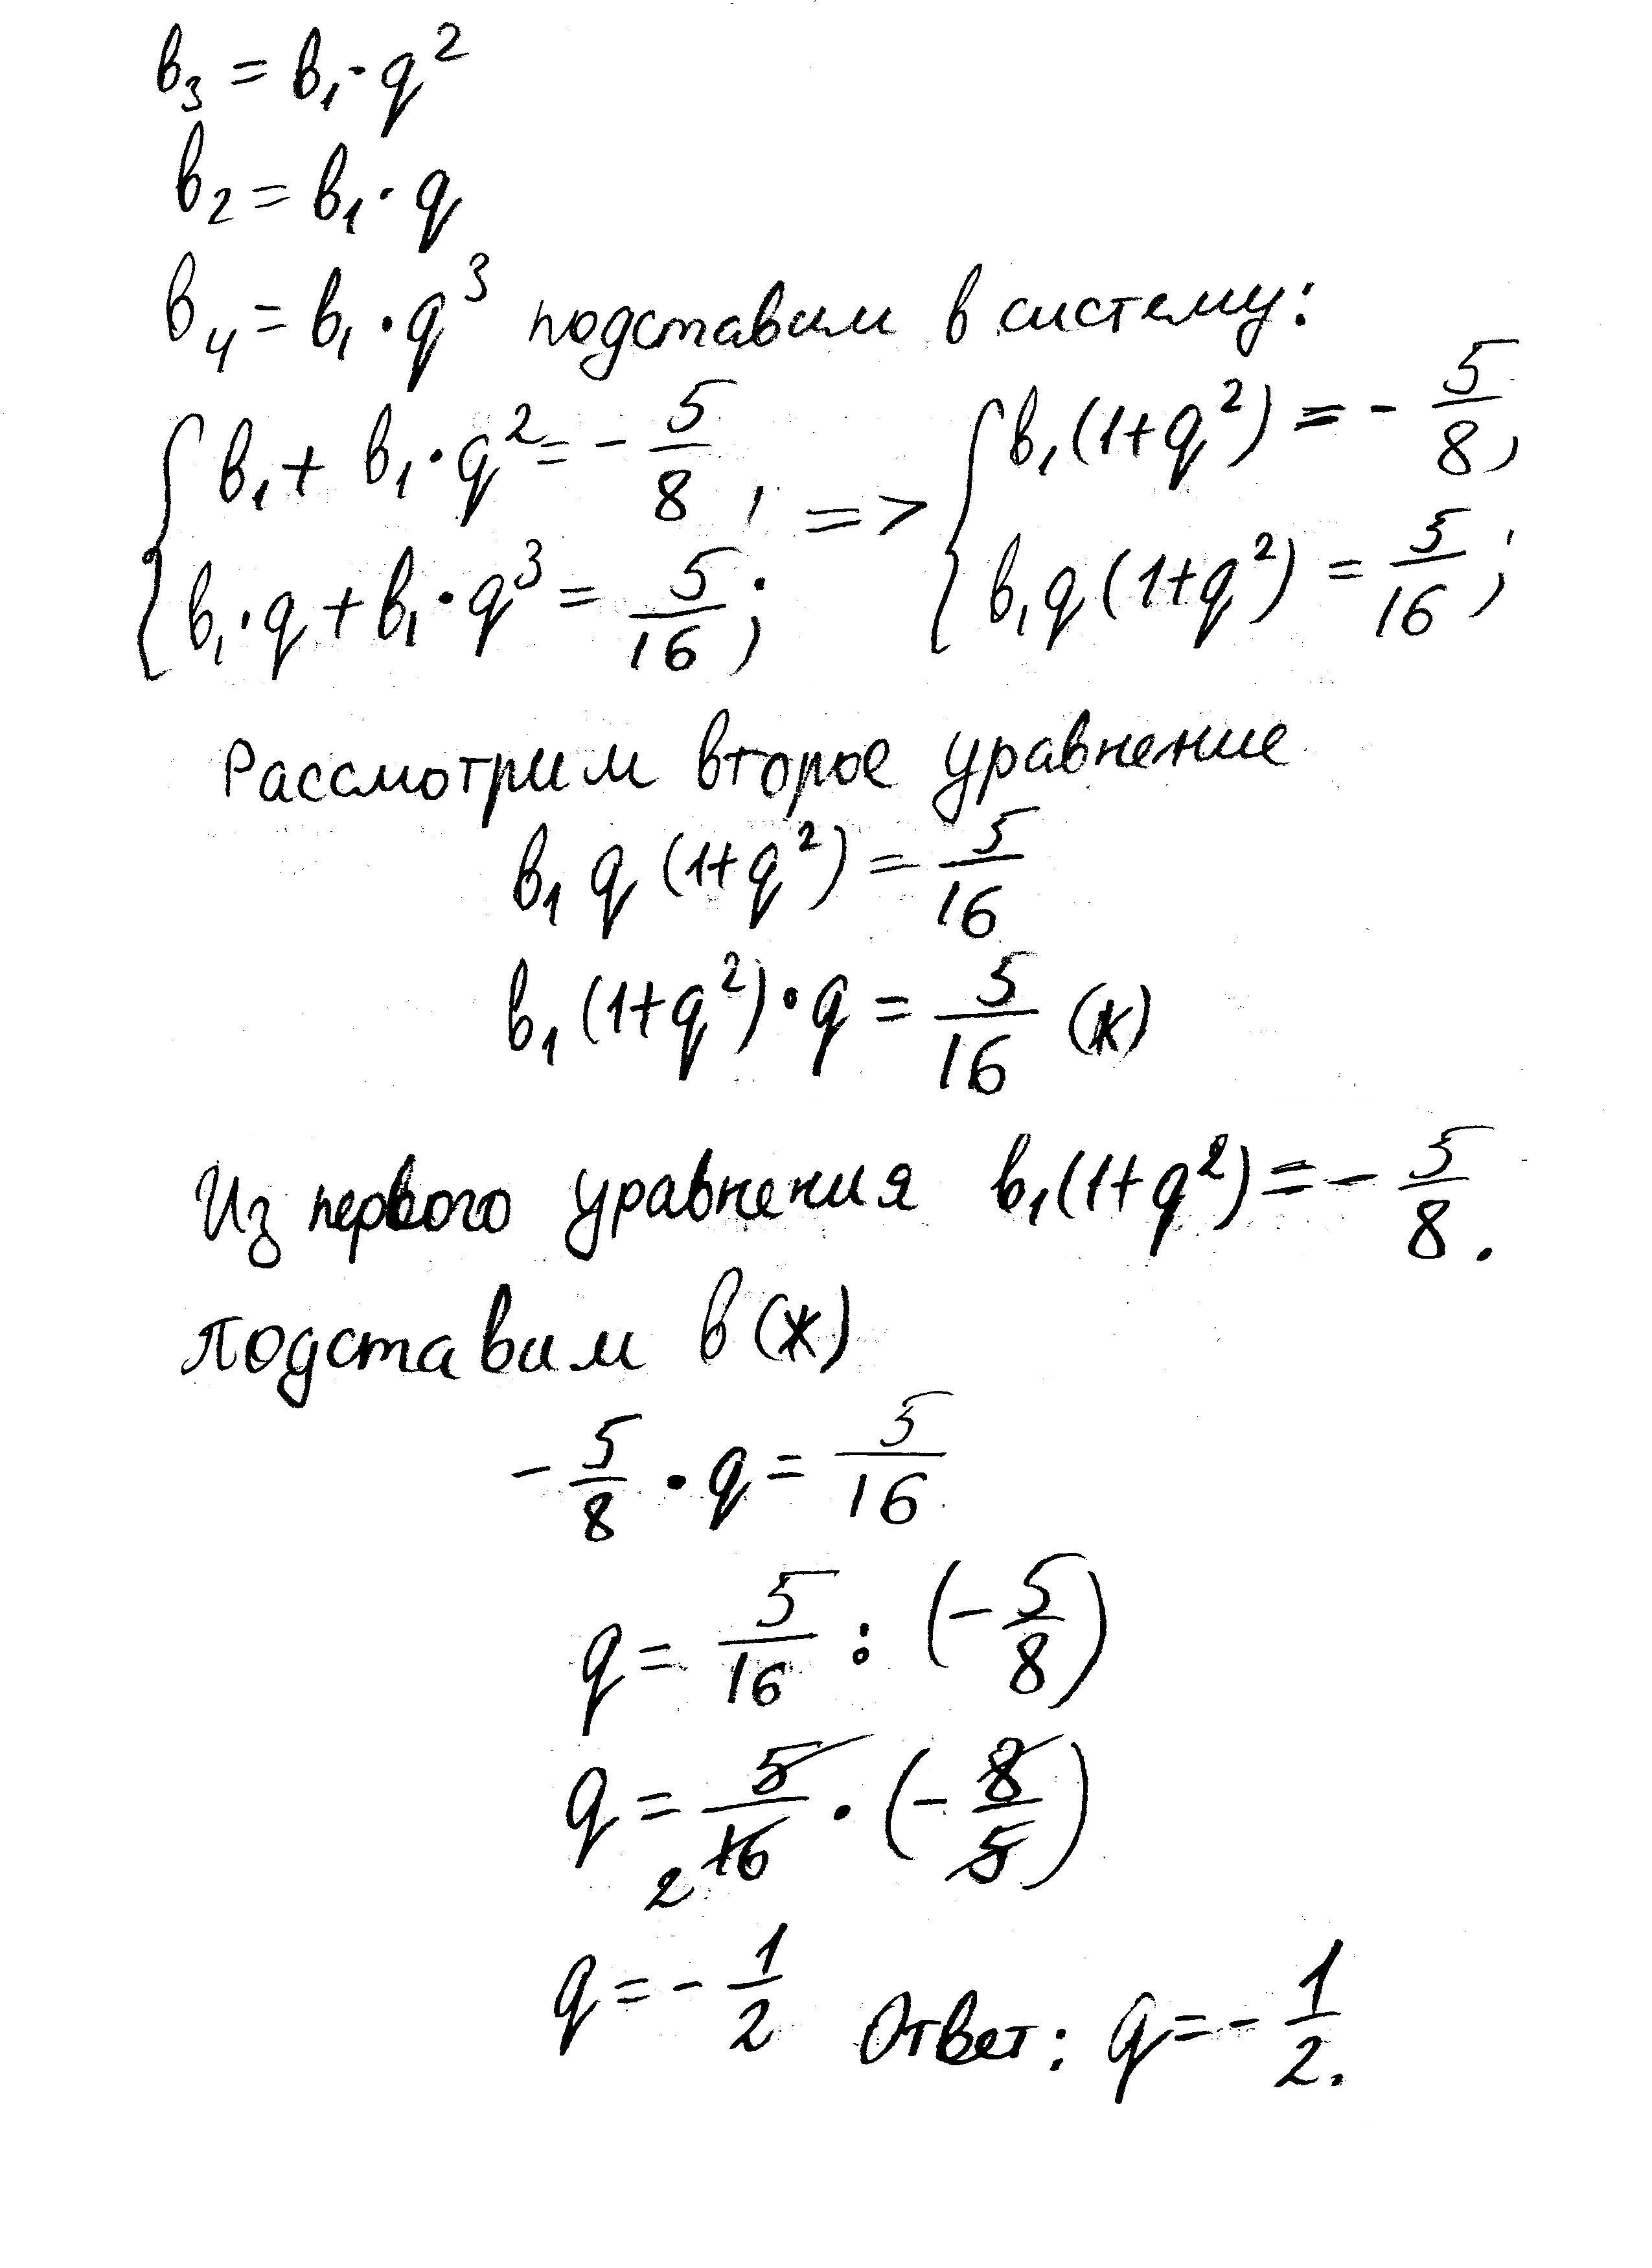 в₃ = в₁ · q²
в₂ = в₁ · q
в₄ = в₁ · q³ подставим в систему:
{ в₁ + в₁ · q² = - 5/8 , => { в₁(1+q²) = - 5/8,
{ в₁ · q + в₁ · q³ = 5/16 ; { в₁q(1+q²) = 5/16 ;
Рассмотрим второе уравнение
в₁ q (1+q²) = 5/16
в₁ (1+q²) · q = 5/16 (ж)
Из первого уравнения в₁(1+q²) = - 5/8 .
Подставим в (ж)
- 5/8 · q = 5/16
q = 5/16 : (- 5/8)
q = 5/16 · (- 8/5)
2
q = - 1/2 Ответ: q = - 1/2.